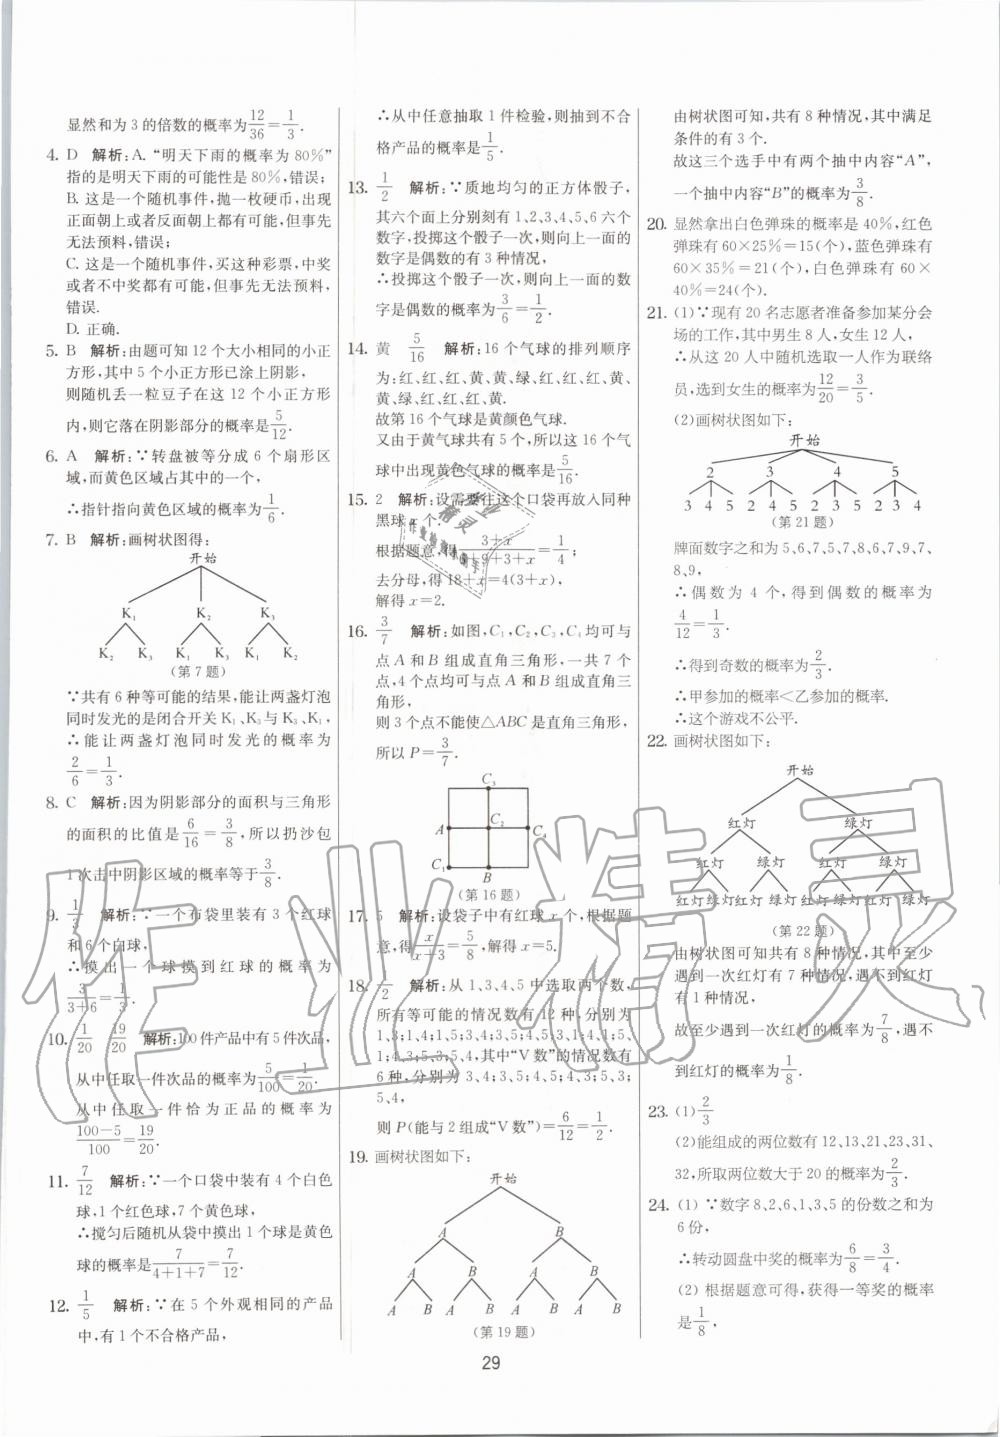 显然和为3的倍数的概率为12/36=1/3.
4. D 解析:A.“明天下雨的概率为80%”
指的是明天下雨的可能性是80%,错误;
B. 这是一个随机事件,抛一枚硬币,出现
正面朝上或者反面朝上都有可能,但事先
无法预料,错误;
C. 这是一个随机事件,买这种彩票,中奖
或者不中奖都有可能,但事先无法预料,
错误.
D. 正确.
5. B 解析:由题可知12个大小相同的小正
方形,其中5个小正方形已涂上阴影,
则随机丢一粒豆子在这12个小正方形
内,则它落在阴影部分的概率是5/12.
6. A 解析:∵转盘被等分成6个扇形区
域,而黄色区域占其中的一个,
∴指针指向黄色区域的概率为1/6.
7. B 解析:画树状图得:
开始
K₁ K₂ K₃
K₂ K₃ K₁ K₃ K₁ K₂
(第7题)
∵共有6种等可能的结果,能让两盏灯泡
同时发光的是闭合开关K₁、K₃与K₃、K₁,
∴能让两盏灯泡同时发光的概率为
2/6=1/3.
8. C 解析:因为阴影部分的面积与三角形
的面积的比值是6/16=3/8,所以扔沙包
1次击中阴影区域的概率等于3/8.
9. 1/3 解析:∵一个布袋里装有3个红球
和6个白球,
∴摸出一个球摸到红球的概率为
3/(3+6)=1/3.
10. 1/20 19/20 解析:100件产品中有5件次品,
从中任取一件次品的概率为5/100=1/20.
从中任取一件恰为正品的概率为
(100-5)/100=19/20.
11. 7/12 解析:∵一个口袋中装有4个白色
球,1个红色球,7个黄色球,
∴搅匀后随机从袋中摸出1个球是黄色
球的概率是7/(4+1+7)=7/12.
12. 1/5 解析:∵在5个外观相同的产品
中,有1个不合格产品,
∴从中任意抽取1件检验,则抽到不合
格产品的概率是1/5.
13. 1/2 解析:∵质地均匀的正方体骰子,
其六个面上分别刻有1、2、3、4、5、6六个
数字,投掷这个骰子一次,则向上一面的
数字是偶数的有3种情况,
∴投掷这个骰子一次,则向上一面的数
字是偶数的概率为3/6=1/2.
14. 黄 5/16 解析:16个气球的排列顺序
为:红、红、红、黄、黄、绿、红、红、红、黄、
黄、绿、红、红、红、黄.
故第16个气球是黄颜色气球.
又由于黄气球共有5个,所以这16个气
球中出现黄色气球的概率是5/16.
15. 2 解析:设需要往这个口袋再放入同种
黑球x个.
根据题意,得(3+x)/(6+9+3+x)=1/4;
去分母,得18+x=4(3+x),
解得x=2.
16. 3/7 解析:如图,C₁,C₂,C₃,C₄均可与
点A和B组成直角三角形,一共7个
点,4个点均可与点A和B组成直角三
角形,
则3个点不能使△ABC是直角三角形,
所以P=3/7.
C₃
A C₂ C₄
C₁ B
(第16题)
17. 5 解析:设袋子中有红球x个,根据题
意,得x/(x+3)=5/8,解得x=5.
18. 1/2 解析:从1、3、4、5中选取两个数,
所有等可能的情况数有12种,分别为
1、3;1、4;1、5;3、4;3、5;4、5;3、1;4、1;5、
1;4、3;5、3;5、4,其中“V数”的情况数有
6种,分别为3、4;3、5;4、5;4、3;5、3;
5、4,
则P(能与2组成“V数”)=6/12=1/2.
19. 画树状图如下:
开始
A B
A B A B
A B A B A B A B
(第19题)
由树状图可知,共有8种情况,其中满足
条件的有3个.
故这三个选手中有两个抽中内容“A”,
一个抽中内容“B”的概率为3/8.
20. 显然拿出白色弹珠的概率是40%,红色
弹珠有60×25%=15(个),蓝色弹珠有
60×35%=21(个),白色弹珠有60×
40%=24(个).
21. (1)∵现有20名志愿者准备参加某分会
场的工作,其中男生8人,女生12人,
∴从这20人中随机选取一人作为联络
员,选到女生的概率为12/20=3/5.
(2)画树状图如下:
开始
2 3 4 5
3 4 5 2 4 5 2 3 5 2 3 4
(第21题)
牌面数字之和为5、6、7、5、7、8、6、7、9、7、
8、9,
∴偶数为4个,得到偶数的概率为
4/12=1/3.
∴得到奇数的概率为2/3.
∴甲参加的概率<乙参加的概率.
∴这个游戏不公平.
22. 画树状图如下:
开始
红灯 绿灯
红灯 绿灯 红灯 绿灯
红灯 绿灯 红灯 绿灯 红灯 绿灯 红灯 绿灯
(第22题)
由树状图可知共有8种情况,其中至少
遇到一次红灯有7种情况,遇不到红灯
有1种情况,
故至少遇到一次红灯的概率为7/8,遇不
到红灯的概率为1/8.
23. (1)2/3
(2)能组成的两位数有12、13、21、23、31、
32,所取两位数大于20的概率为2/3.
24. (1)∵数字8、2、6、1、3、5的份数之和为
6份,
∴转动圆盘中奖的概率为6/8=3/4.
(2)根据题意可得,获得一等奖的概率
是1/8.
29
作业精灵